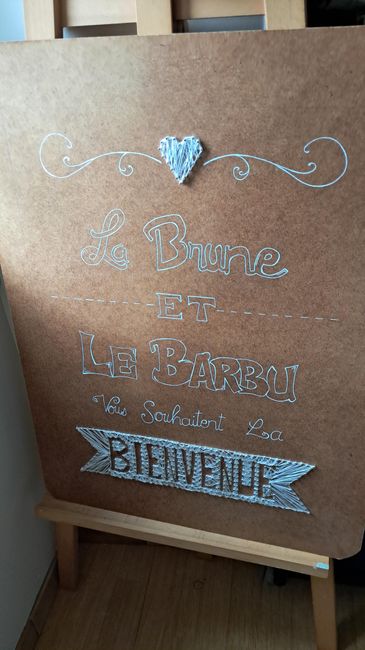 La Brune
ET
LE BARBU
Vous Souhaitent La
BIENVENUE